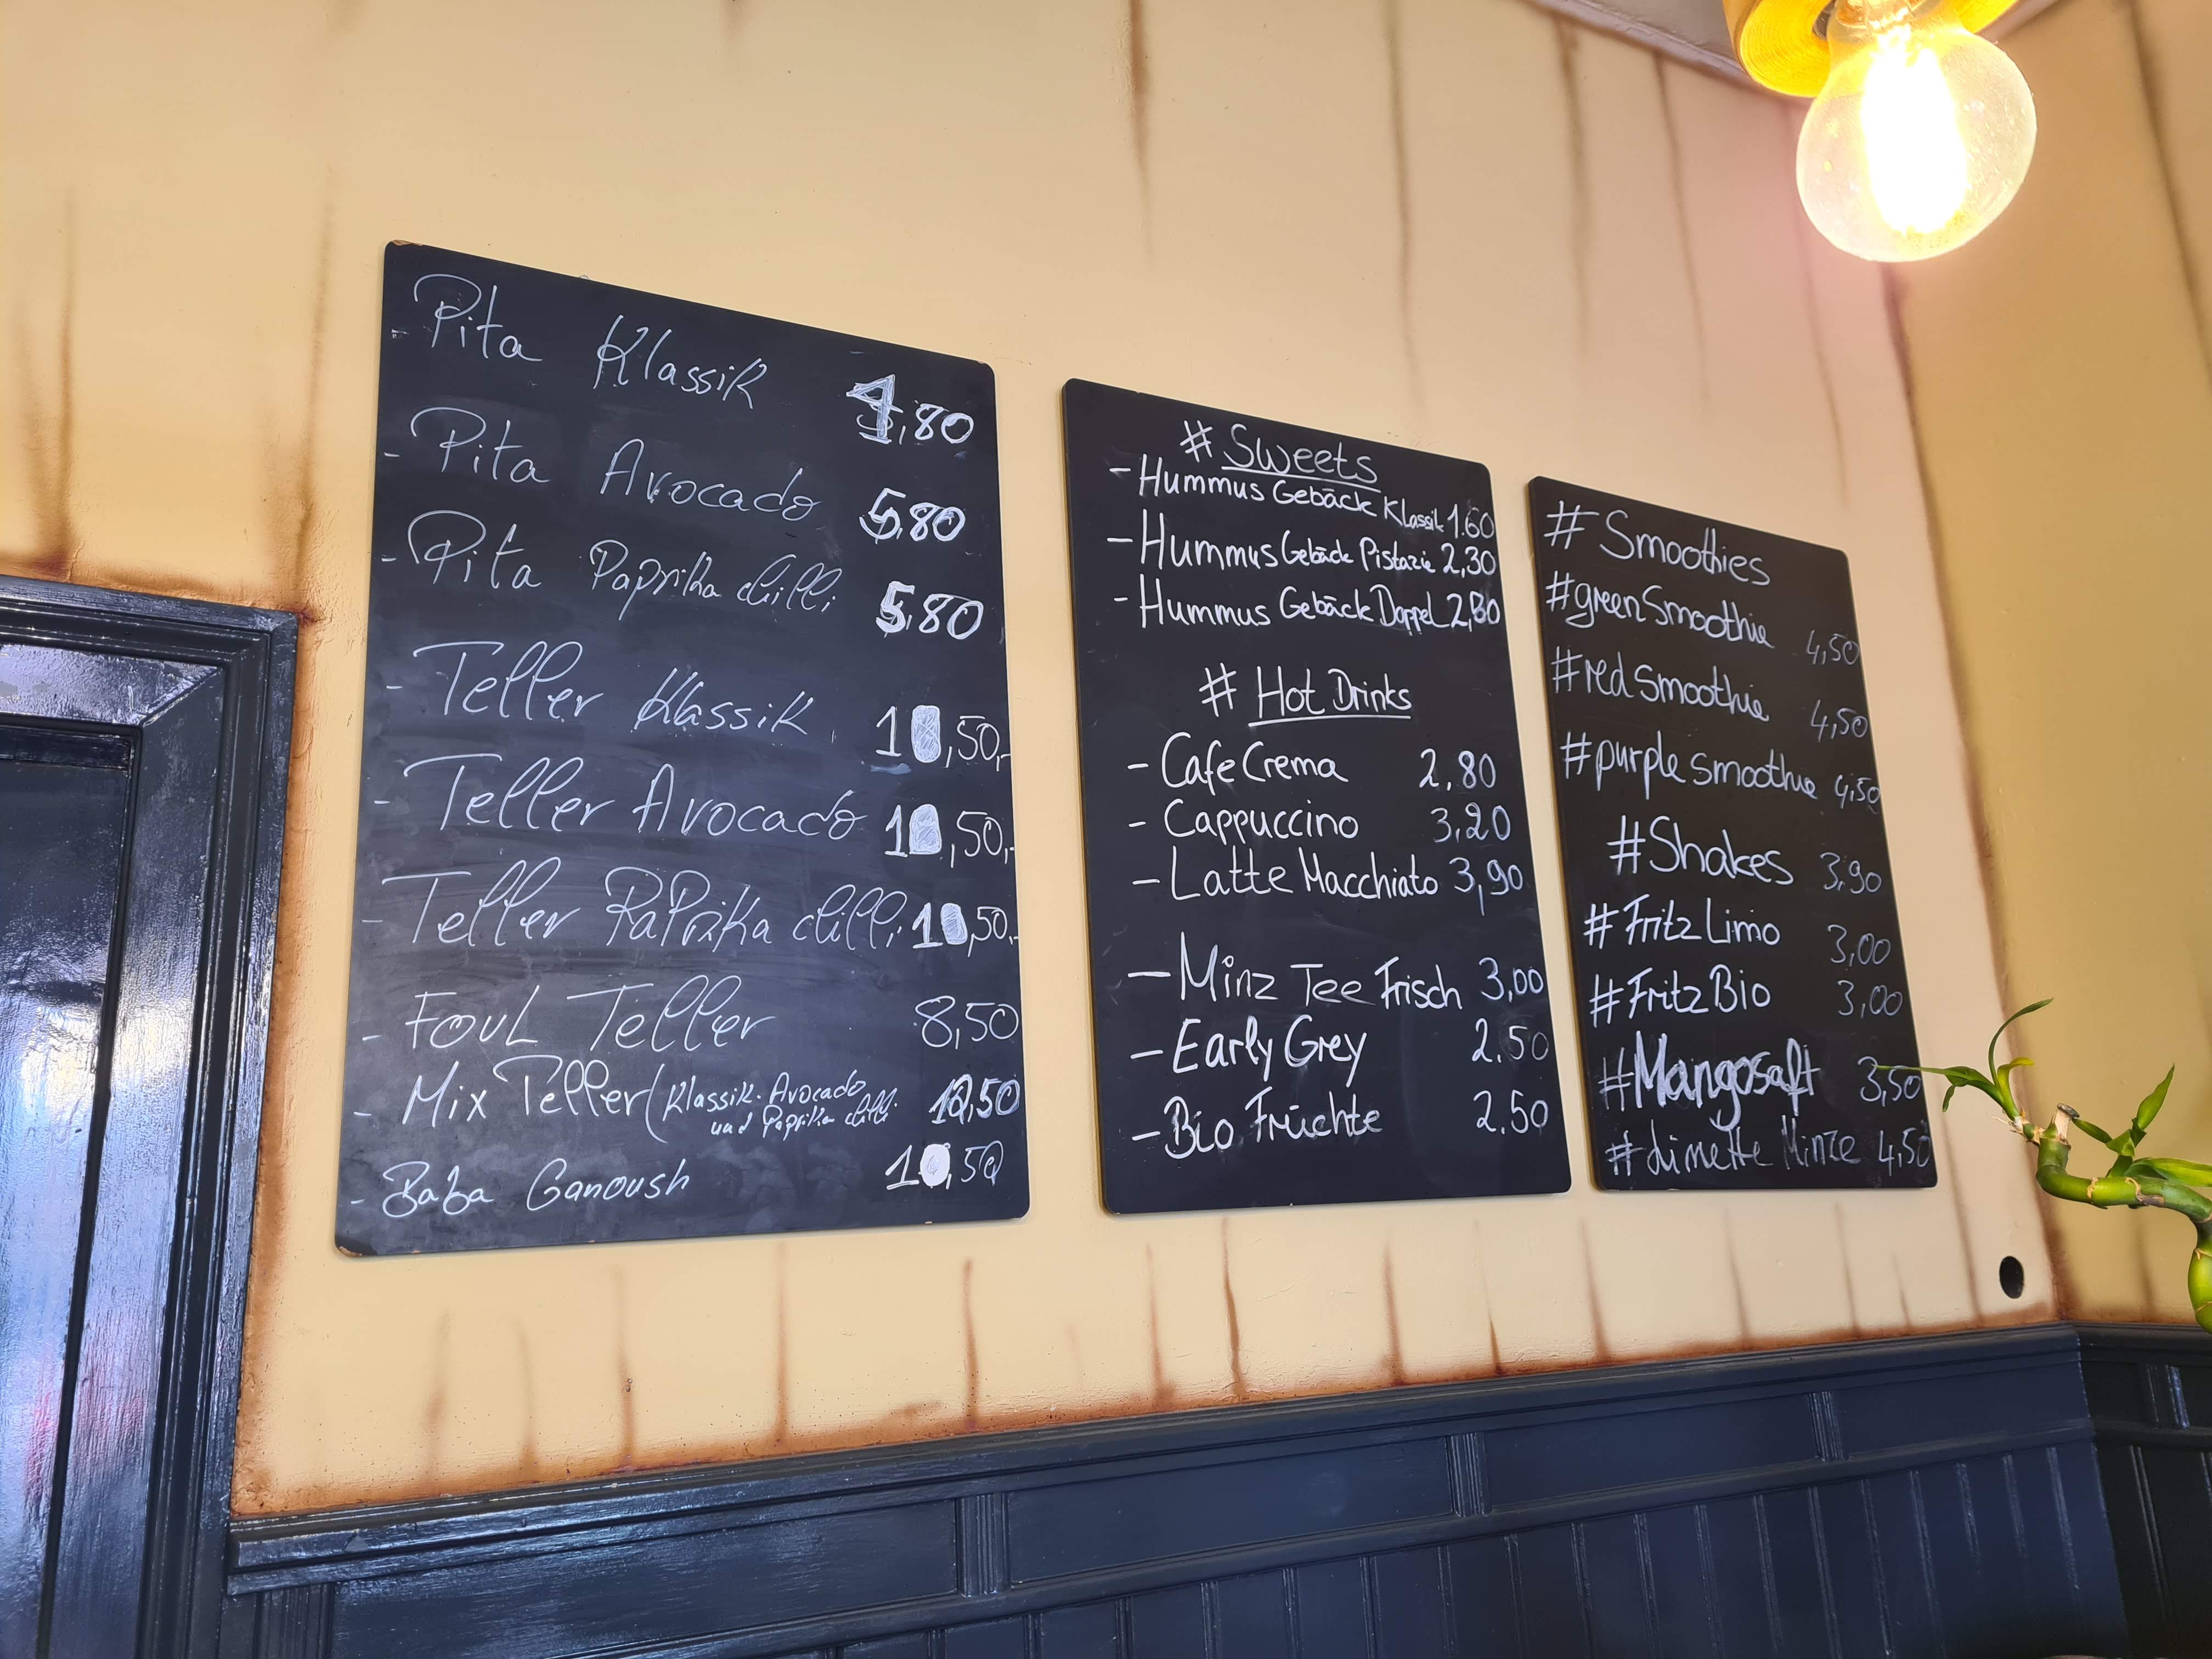 - Pita Klassik 4,80
- Pita Avocado 5,80
- Pita Paprika chilli 5,80
- Teller Klassik ,50,-
- Teller Avocado ,50,-
- Teller PaPrika chilli ,50,-
- Foul Teller 8,50
- Mix Teller (Klassik. Avocado
und Paprika chilli 12,50
- Baba Ganoush ,50
# Sweets
- Hummus Gebäck Klassik 1.60
- Hummus Gebäck Pistazie 2,30
- Hummus Gebäck Doppel
# Hot Drinks
- Cafe Crema 2,80
- Cappuccino 3,20
- Latte Macchiato 3,90
- Minz Tee Frisch 3,00
- Early Grey 2.50
- Bio Früchte 2.50
# Smoothies
#green Smoothie 4,50
#red Smoothie 4,50
#purple smoothie 4,50
#Shakes 3,90
#Fritz Limo 3,00
#Fritz Bio 3,00
#Mangosaft 3,50
#Limette Minze 4,50